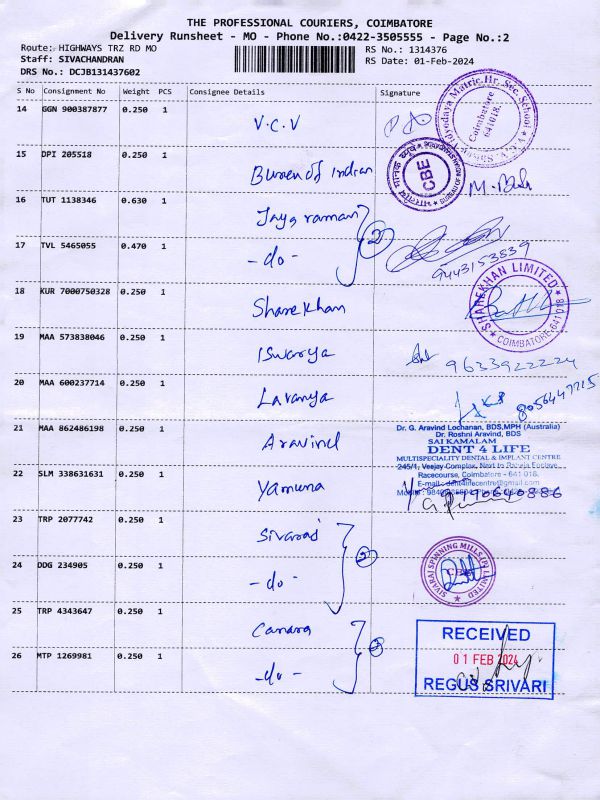 THE PROFESSIONAL COURIERS, COIMBATORE
Delivery Runsheet - MO - Phone No.:0422-3505555 - Page No.:2
Route: HIGHWAYS TRZ RD MO
RS No.: 1314376
Staff: SIVACHANDRAN
RS Date: 01-Feb-2024
DRS No.: DCJB131437602
S No Consignment No Weight PCS Consignee Details Signature
14 GGN 900387877 0.250 1 V.C.V
Coimbatore 641018.
15 DPI 205518 0.250 1 Bureau of Indian
CBE
16 TUT 1138346 0.630 1 Jayaraman
17 TVL 5465055 0.470 1 -do- 2
9443153839
18 KUR 7000750328 0.250 1 Sharekhan
SHAREKHAN LIMITED
COIMBATORE-641 018
19 MAA 573838046 0.250 1 Iswarya 9633922224
20 MAA 600237714 0.250 1 Lavanya 8056447715
21 MAA 862486198 0.250 1 Aravind
Dr. G. Aravind Lochanan, BDS,MPH (Australia)
Dr. Roshni Aravind, BDS
SAI KAMALAM
DENT 4 LIFE
MULTISPECIALITY DENTAL & IMPLANT CENTRE
245/1, Veejay Complex, Next to Enclave
Racecourse, Coimbatore - 641 018.
E-mail: dent4lifecentre@gmail.com
22 SLM 338631631 0.250 1 Yamuna
23 TRP 2077742 0.250 1 Sivaraj
24 DDG 234905 0.250 1 -do- 2
SIVARAJ SPINNING MILLS (P) LIMITED
25 TRP 4343647 0.250 1 Canara
26 MTP 1269981 0.250 1 -do- 2
RECEIVED
01 FEB 2024
REGUS SRIVARI